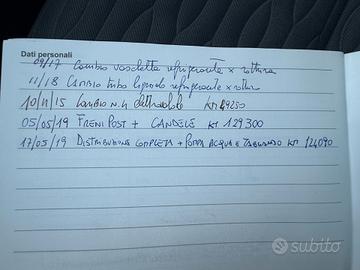 Dati personali
09/17 Cambio vaschetta refrigerante x rottura
11/18 Cambio tubo liquido refrigerante x rottura
10/11/15 Cambio N.4 KM 89250
05/05/19 FRENI POST + CANDELE KM 129300
17/05/19 DISTRIBUZIONE COMPLETA + POMPA ACQUA E KM 124090
subito